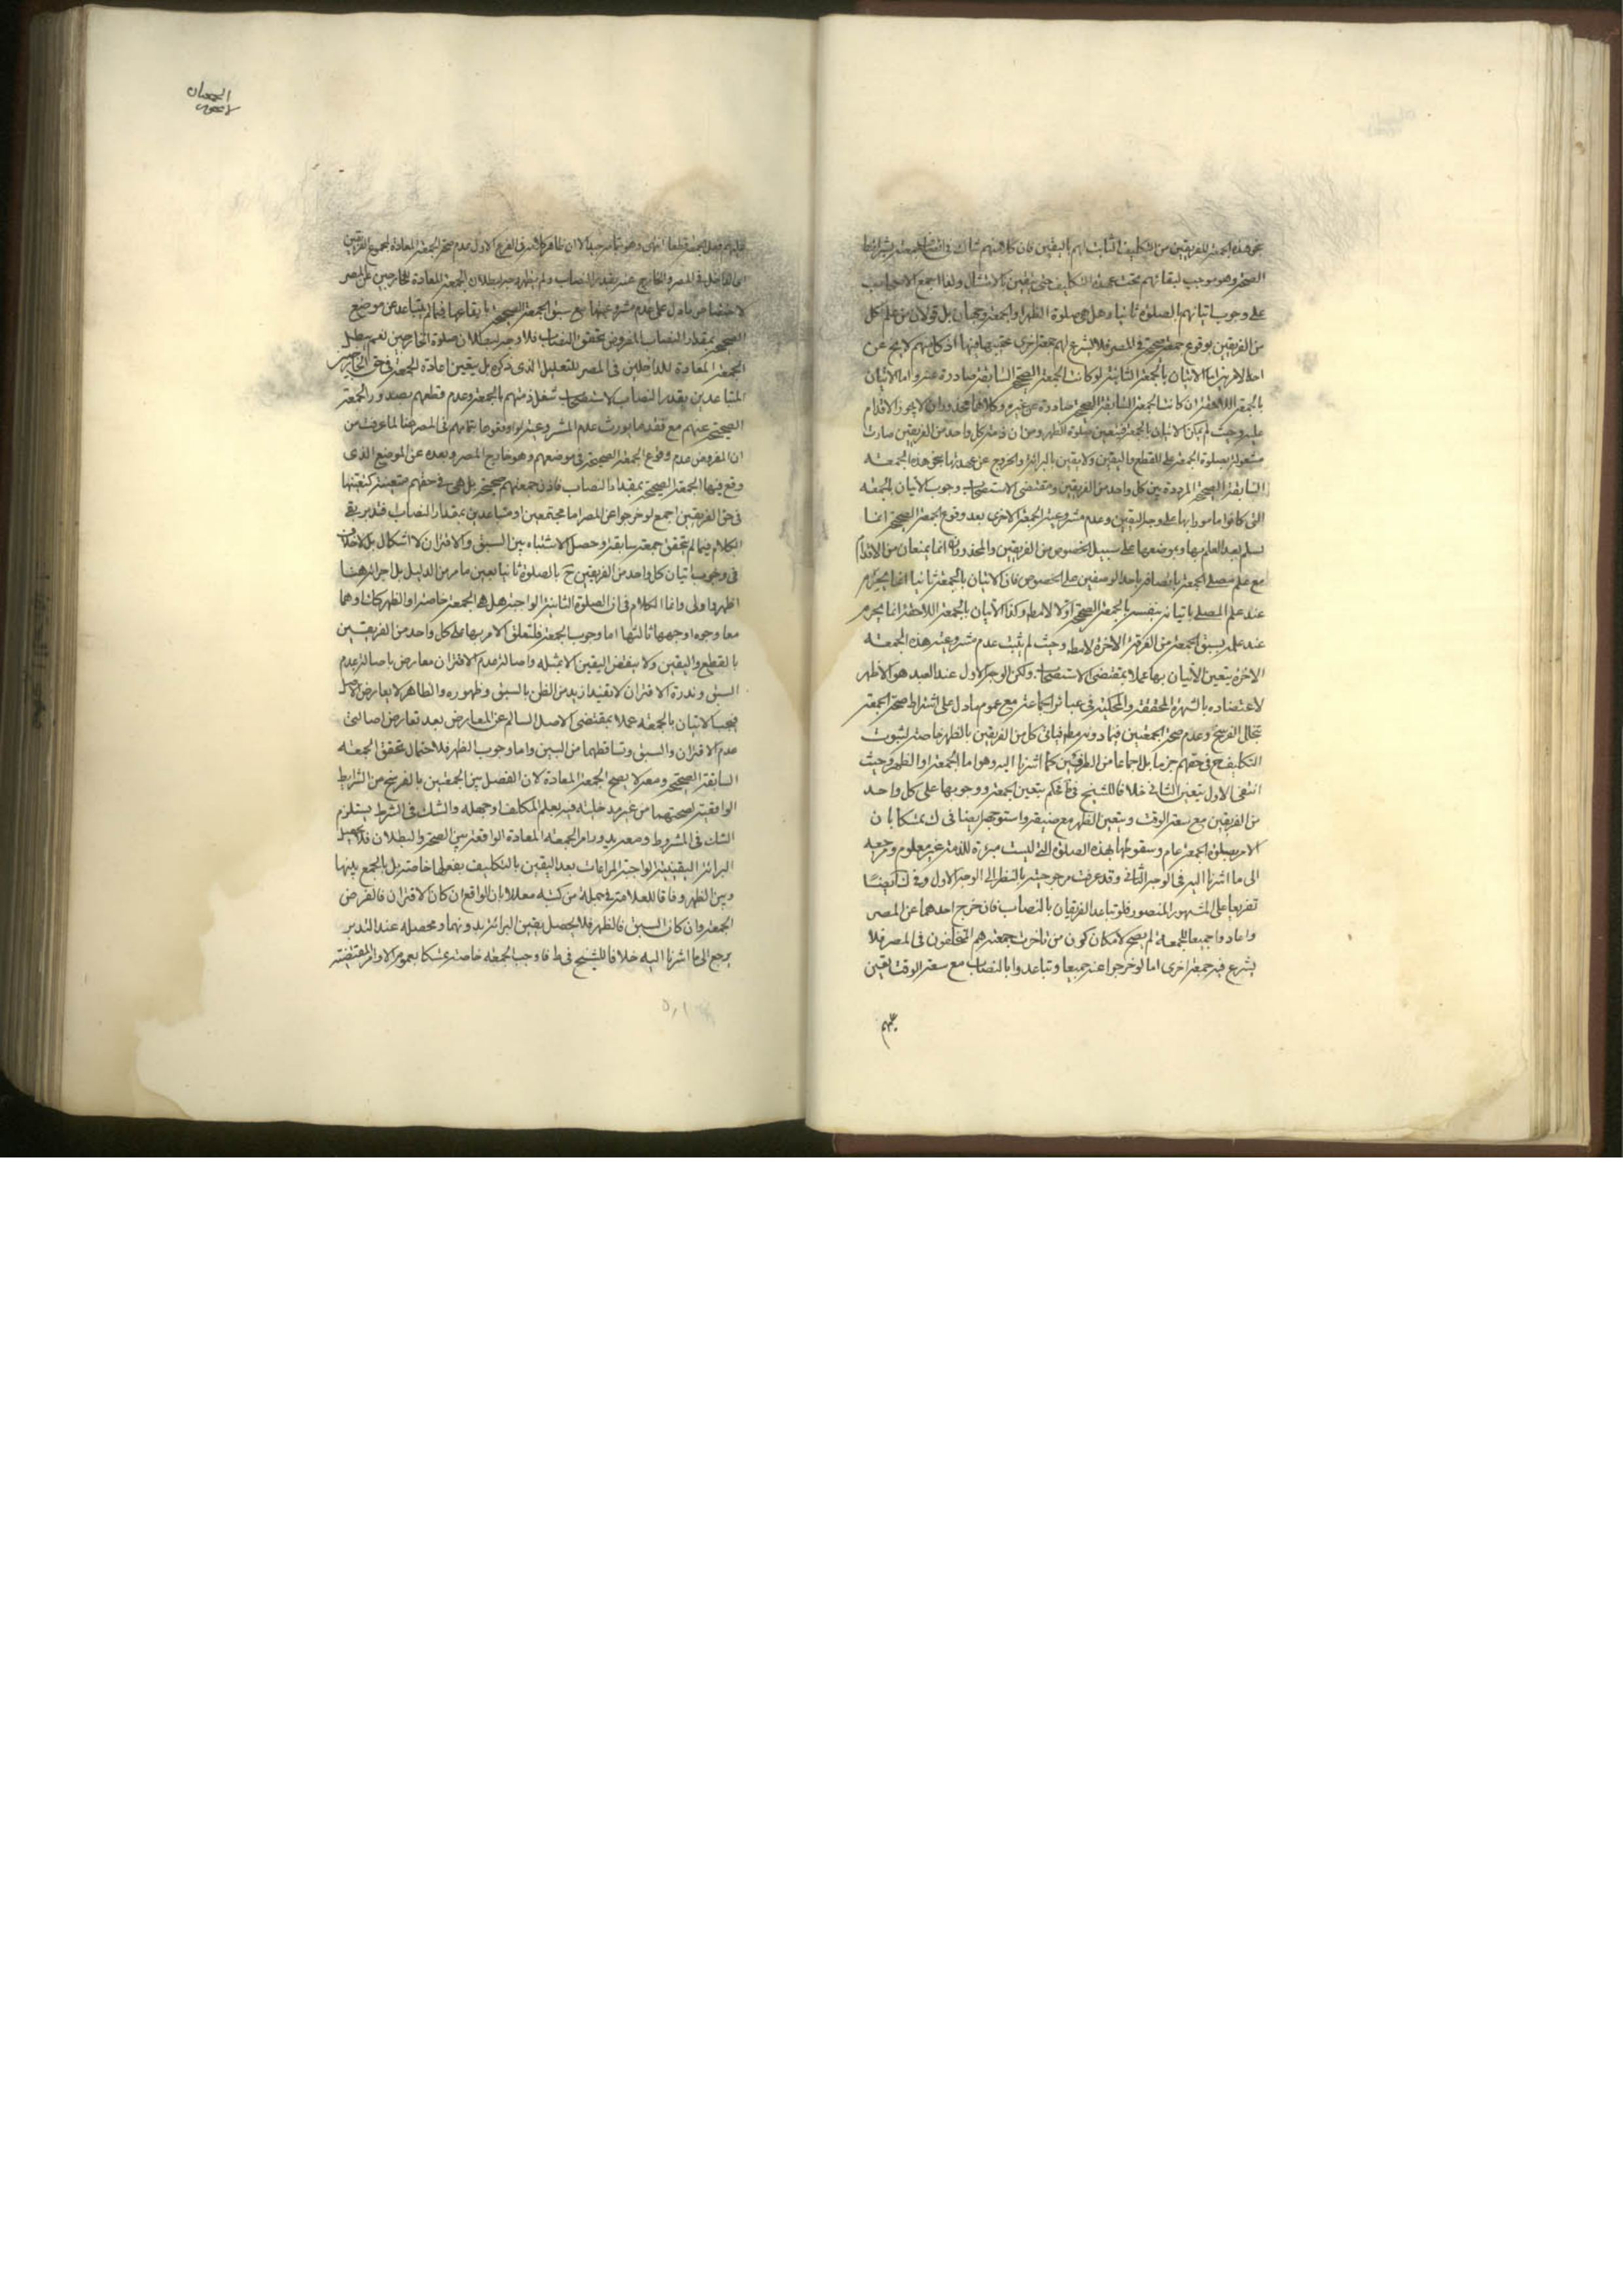 هذه الجمعة للفريقين من التكليف الثابت لهم باليقين فان كلا منهم شاك في
الصحة وهو موجب لبقائهم تحت عهدة التكليف حتى يتيقن بالامتثال ولذا اجمع الاصحاب
على وجوب اتيانهم بالصلوة ثانيا وهل هي صلوة الظهر او الجمعة وجهان بل قولان من علم كل
من الفريقين بوقوع جمعة صحيحة في المصر فلا يشرع لهم جمعة اخرى عقيبها فيها اذ كل منهم لا يخ عن
احد الامرين اما الاتيان بالجمعة الثانية لو كانت الجمعة الصحيحة السابقة صادرة عنه واما الاتيان
بالجمعة اللاحقة ان كانت الجمعة السابقة الصحيحة صادرة عن غيره وكلاهما محذوران لا يجوز الاقدام
عليه وحيث لم يمكن الاتيان بالجمعة فيتعين صلوة الظهر ومن ان ذمة كل واحد من الفريقين صارت
مشغولة بصلوة الجمعة على القطع واليقين ولا يقين بالبرائة والخروج عن عهدتها بنحو هذه الجمعه
السابقة الصحيحة المرددة بين كل واحد من الفريقين ومقتضى الاستصحاب وجوب الاتيان بالجمعه
التي كانوا مامورا بها على وجه اليقين وعدم مشروعية الجمعة الاخرى بعد وقوع الجمعة الصحيحة انما
يسلم بعد العلم بها وبوضعها على سبيل الخصوص من الفريقين والمحذوران انما يمنعان من الاقدام
مع علم مصلى الجمعة باتصافه باحد الوصفين على الخصوص فان الاتيان بالجمعة ثانيا انما يحرم
عند علم المصلى باتيانه بنفسه بالجمعة الصحيحة اولا لا مط وكذا الاتيان بالجمعة اللاحقة انما يحرم
عند علمه بسبق الجمعة من الفرقة الاخرة لا مط وحيث لم يثبت عدم مشروعية هذه الجمعه
الاخرة يتعين الاتيان بها عملا بمقتضى الاستصحاب ولكن الوجه الاول عند العبد هو الاظهر
لاعتضاده بالشهرة المحققة والمحكية في عبائر الجماعة مع عموم ما دل على اشتراط صحة الجمعة
بتخلل الفرسخ وعدم صحة الجمعتين فيما دونه مط فياتى كل من الفريقين بالظهر خاصة لثبوت
التكليف ح في حقهم جزما بل اجماعا من الطرفين كما اشرنا اليه وهو اما الجمعة او الظهر وحيث
انتفى الاول يتعين الثاني خلافا للشيخ في ط فحكم بتعين الجمعة ووجوبها على كل واحد
من الفريقين مع سعة الوقت ويتعين الظهر مع ضيقه واستوجهه بعضنا في ك متمسكا بان
الامر بصلوة الجمعة عام وسقوطها بهذه الصلوة التي ليست مبرئة للذمة غير معلوم ومرجعه
الى ما اشرنا اليه في الوجه الثاني وقد عرفت مرجوحيته بالنظر الى الوجه الاول وفي ك ايضا
تفريعا على المشهور المنصور فلو تباعد الفريقان بالنصاب فان خرج احدهما عن المصر
واعادوا جميعا للجمعة لم يصح لامكان كون من تاخرت جمعته هم المتخلفون في المصر فلا
يشرع فيه جمعة اخرى اما لو خرجوا عنه جميعا وتباعدوا بالنصاب مع سعة الوقت تعين
عليهم
الجمعتان
عليهم فعل الجمعة قطعا انتهى وهو الا ان ظاهر كلامه في الفرع الاول عدم صحة الجمعة المعادة لجميع الفريقين
اى الداخل في المصر والخارج عنه بقدر النصاب ولم يظهر وجه بطلان الجمعة المعادة للخارجين عن المصر
لاختصاص ما دل على عدم مشروعيتها مع سبق الجمعة الصحيحة بايقاعها فيما لم يتباعد عن موضع
الصحيحة بمقدار النصاب المفروض تحقق النصاب فلا وجه لبطلان صلوة الخارجين نعم يبطل
الجمعة المعادة للداخلين في المصر للتعليل الذي ذكره بل يتعين اعادة الجمعة في حق الخارجين
المتباعدين بقدر النصاب لاستصحاب شغل ذمتهم بالجمعة وعدم قطعهم بصدور الجمعة
الصحيحة عنهم مع فقد ما يورث عدم المشروعية لو اوقعوها بتمامهم في المصر هنا لما عرفت من
ان المفروض عدم وقوع الجمعة الصحيحة في موضعهم وهو خارج المصر وبعده عن الموضع الذي
وقع فيها الجمعة الصحيحة بمقدار النصاب فاذن جمعتهم صحيحة بل هي في حقهم متعينة كتعينها
في حق الفريقين اجمع لو خرجوا عن المصر اما مجتمعين او متباعدين بمقدار النصاب فتدبر بقى
الكلام فيما لم يتحقق جمعة سابقة وحصل الاشتباه بين السبق والاقتران لا اشكال بل لا خلاف
في وجوب اتيان كل واحد من الفريقين ح بالصلوة ثانيا بعين ما مر من الدليل بل اجرائه هنا
اظهر واولى وانما الكلام في ان الصلوة الثانية الواجبة هل هي الجمعة خاصة او الظهر كك او هما
معا وجوه اوجهها ثالثها اما وجوب الجمعة فلتعلق الامر بها على كل واحد من الفريقين
بالقطع واليقين ولا ينقض اليقين الا بمثله واصالة عدم الاقتران معارض باصالة عدم
السبق وندرة الاقتران لا تفيد ازيد من الظن بالسبق وظهوره والظاهر لا يعارض الاصل
فيجب الاتيان بالجمعه عملا بمقتضى الاصل السالم عن المعارض بعد تعارض اصالتى
عدم الاقتران والسبق وتساقطهما من البين واما وجوب الظهر فلاحتمال تحقق الجمعه
السابقة الصحيحة ومعه لا يصح الجمعة المعادة لان الفصل بين الجمعتين بالفرسخ من الشرايط
الواقعية لصحتهما من غير مدخلية فيه بعلم المكلف او جهله والشك في الشرط يستلزم
الشك في المشروط ومعه يدور امر الجمعه المعادة الواقعة بين الصحة والبطلان فلا يحصل
البرائة اليقينية الواجبة المراعات بعد اليقين بالتكليف بفعلها خاصة بل بالجمع بينها
وبين الظهر وفاقا للعلامة في جملة من كتبه معللا بان الواقع ان كان الاقتران فالفرض
الجمعة وان كان السبق فالظهر فلا يحصل يقين البرائة بدونهما ومحصله عند التدبر
يرجع الى ما اشرنا اليه خلافا للشيخ في ط فاوجب الجمعه خاصة متمسكا بعموم الاوامر المقتضية